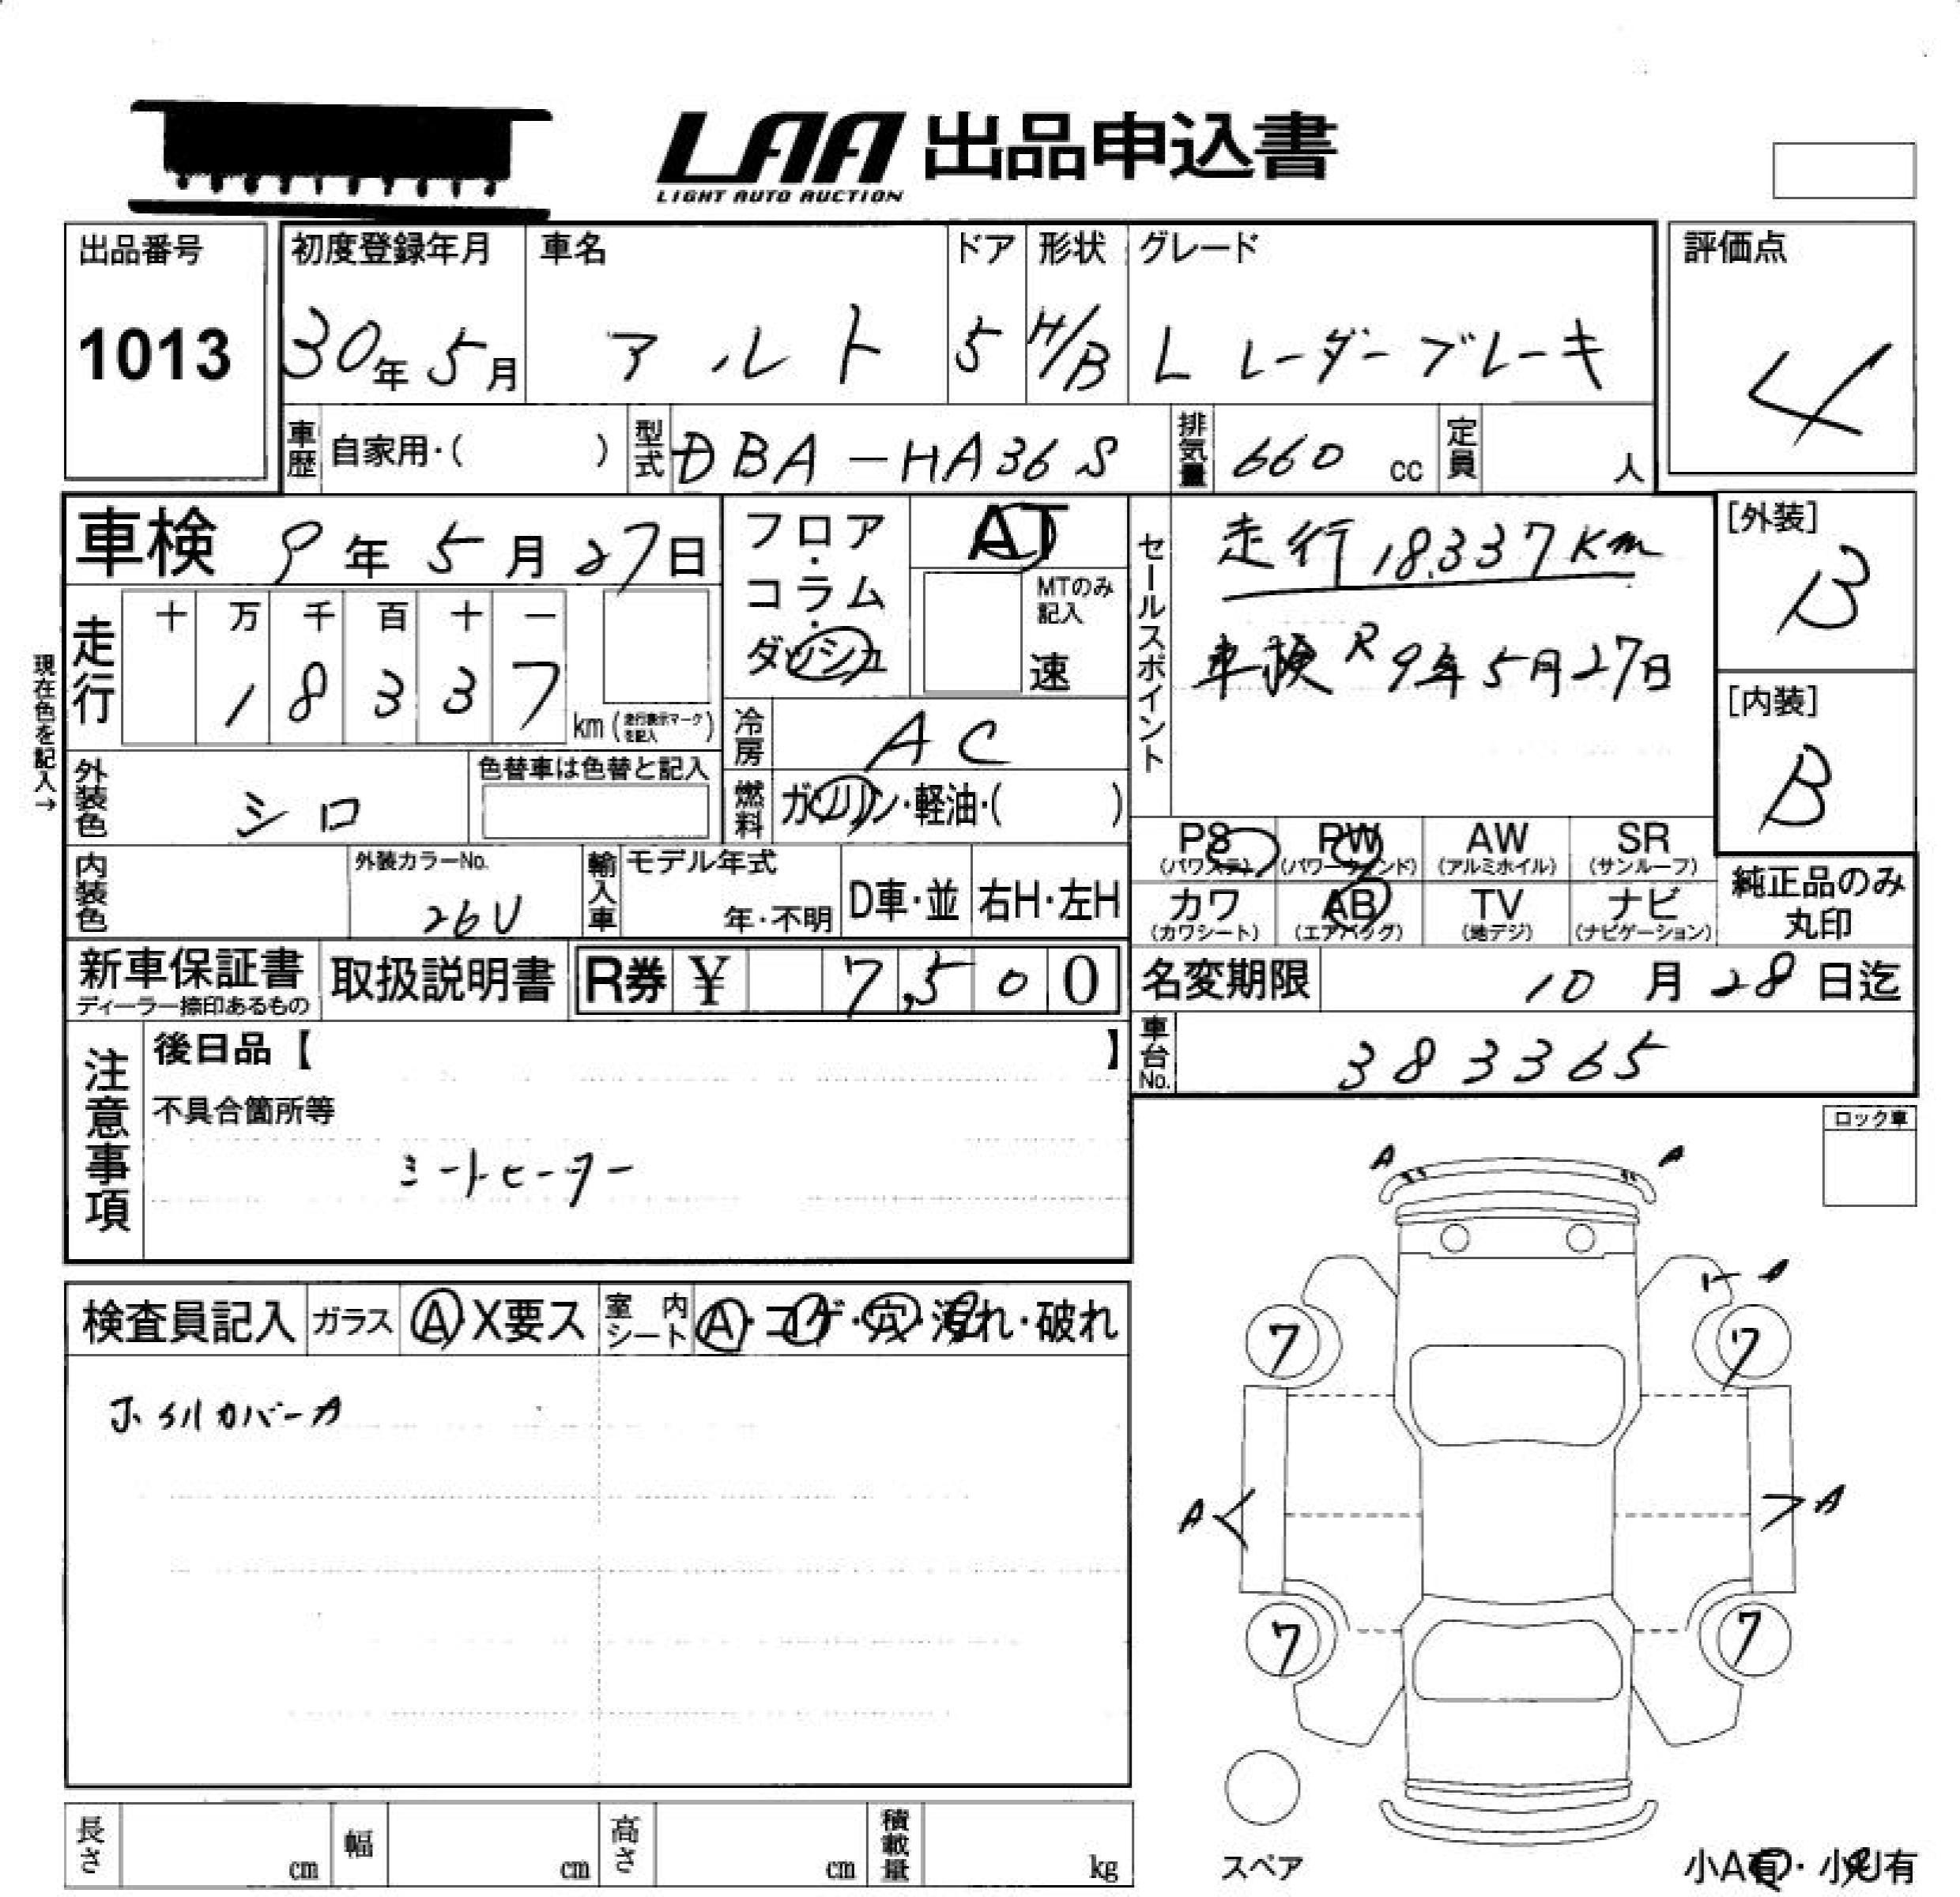 LAA 出品申込書
LIGHT AUTO AUCTION
出品番号
1013
初度登録年月
30年 5月
車名
アルト
ドア
5
形状
H/B
グレード
L レーダーブレーキ
評価点
4
車歴 自家用・( )
型式 DBA-HA36S
排気量 660 cc
定員 人
車検 9年 5月 27日
フロア・コラム・ダッシュ
AT
MTのみ記入
速
セールスポイント
走行 18.337Km
車検 R9年5月27日
[外装]
B
[内装]
B
現在色を記入→
走行
十 万 千 百 十 一
1 8 3 3 7
km (走行表示マークを記入)
冷房 AC
燃料 ガソリン・軽油・( )
外装色 シロ
色替車は色替と記入
PS (パワステ)
PW (パワーウィンド)
AW (アルミホイル)
SR (サンルーフ)
カワ (カワシート)
AB (エアバッグ)
TV (地デジ)
ナビ (ナビゲーション)
純正品のみ丸印
内装色
外装カラーNo.
26U
輸入車
モデル年式
年・不明
D車・並
右H・左H
新車保証書
ディーラー捺印あるもの
取扱説明書
R券 ¥ 7,500
名変期限 10月28日迄
車台No. 383365
注意事項
後日品【 】
不具合箇所等
シートヒーター
ロック車
検査員記入
ガラス A X要ス
室内シート A・コゲ・穴・汚れ・破れ
ホイルカバーA
A A
トーA
7 7
A A
7 7
スペア
長さ cm
幅 cm
高さ cm
積載量 kg
小A有・小U有